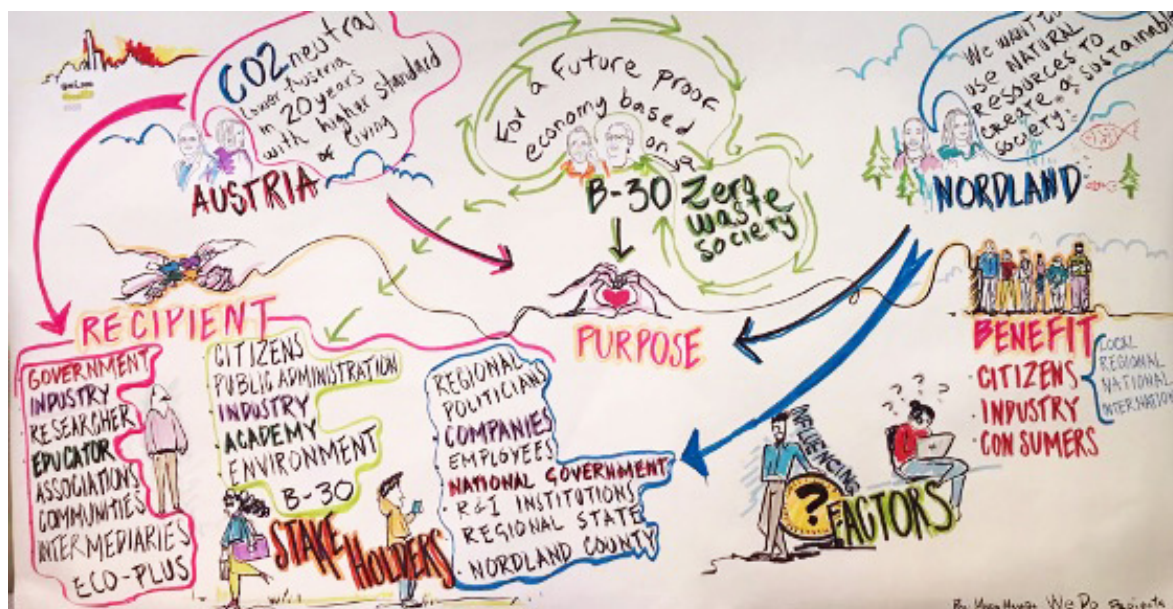 CO2 neutral
Lower Austria
in 20 years
with higher standard
of living
AUSTRIA
For a future proof
economy based
on a
B-30 Zero
waste
society
WE WANT TO
USE NATURAL
RESOURCES TO
CREATE A SUSTAINABLE
SOCIETY.
NORDLAND
RECIPIENT
GOVERNMENT
INDUSTRY
RESEARCHER
EDUCATOR
ASSOCIATIONS
COMMUNITIES
INTERMEDIARIES
ECO-PLUS
CITIZENS
PUBLIC ADMINISTRATION
INDUSTRY
ACADEMY
ENVIRONMENT
B-30
STAKE
HOLDERS
PURPOSE
REGIONAL
POLITICIANS
COMPANIES
EMPLOYEES
NATIONAL GOVERNMENT
R&I INSTITUTIONS
REGIONAL STATE
NORDLAND COUNTY
INFLUENCING
?
FACTORS
? ? ?
BENEFIT
CITIZENS
INDUSTRY
CONSUMERS
LOCAL
REGIONAL
NATIONAL
INTERNATION
By We Do